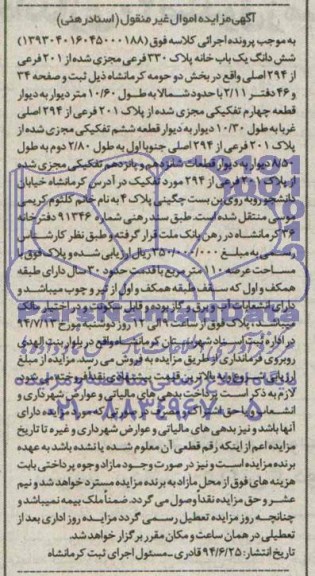 آگهی مزایده اموال غیر منقول (اسناد رهنی)
به موجب پرونده اجرائی کلاسه فوق (۱۳۹۳۰۴۰۱۶۰۴۵۰۰۰۱۸۸)
شش دانگ یک باب خانه پلاک ۳۳۰ فرعی مجزی شده از ۲۰۱ فرعی
از ۲۹۴ اصلی واقع در بخش دو حومه کرمانشاه ذیل ثبت و صفحه ۳۴
و ۴۶ دفتر ۲/۱۱ با حدود شمالا به طول ۱۰/۶۰ متر دیوار به دیوار
قطعه چهارم تفکیکی مجزی شده از پلاک ۲۰۱ فرعی از ۲۹۴ اصلی
غربا به طول ۱۰/۳۰ دیوار به دیوار قطعه ششم تفکیکی مجزی شده از
پلاک ۲۰۱ فرعی از ۲۹۴ اصلی جنوبا اول به طول ۲/۸۰ دوم به طول
۸/۵۰ دیوار به دیوار قطعات شانزدهم و پانزدهم تفکیکی مجزی شده
از پلاک ۲۰۱ فرعی از ۲۹۴ مورد تفکیک در آدرس کرمانشاه خیابان
دانشجو روبه روی بن بست چگینی پلاک ۴ به نام خانم کلثوم کریمی
موسی منتقل شده است. طبق سند رهنی شماره ۹۱۳۴۶ دفترخانه
۳۶ کرمانشاه در رهن بانک ملت قرار گرفته و طبق نظر کارشناس
رسمی به مبلغ ۲۵۰/۰۰۰/۰۰۰ ریال ارزیابی شده و پلاک فوق با
مساحت عرصه ۱۱۰ متر مربع با قدمت حدود ۳۰ سال دارای طبقه
همکف و اول که سقف طبقه همکف و اول از تیر و چوب میباشد و
دارای انشعابات آب و برق و گاز بوده و قابل سکونت و در اختیار مالک
میباشد، پلاک فوق از ساعت ۹ الی ۱۲ روز دوشنبه مورخ ۹۴/۷/۱۳
در اداره ثبت اسناد شهرستان کرمانشاه واقع در بلوار بنت الهدی
روبروی فرمانداری از طریق مزایده به فروش می رسد. مزایده از مبلغ
ارزیابی شروع و به بالاترین قیمت پیشنهادی نقدا فروخته می شود
لازم به ذکر است پرداخت بدهی های مالیاتی و عوارض شهرداری و
آنها باشد و نیز بدهی های مالیاتی و عوارض شهرداری و غیره تا تاریخ
مزایده اعم از اینکه رقم قطعی آن معلوم شده یا نشده باشد به عهده
برنده مزایده است و نیز در صورت وجود مازاد وجوه پرداختی بابت
هزینه های فوق از محل مازاد به برنده مزایده مسترد خواهد شد و نیم
عشر و حق مزایده نقدا وصول می گردد. ضمناً ملک بیمه نمیباشد و
چنانچه روز مزایده تعطیل رسمی گردد مزایده روز اداری بعد از
تعطیلی در همان ساعت و مکان مقرر برگزار خواهد شد.
تاریخ انتشار: ۹۴/۶/۲۵ قادری - مسئول اجرای ثبت کرمانشاه